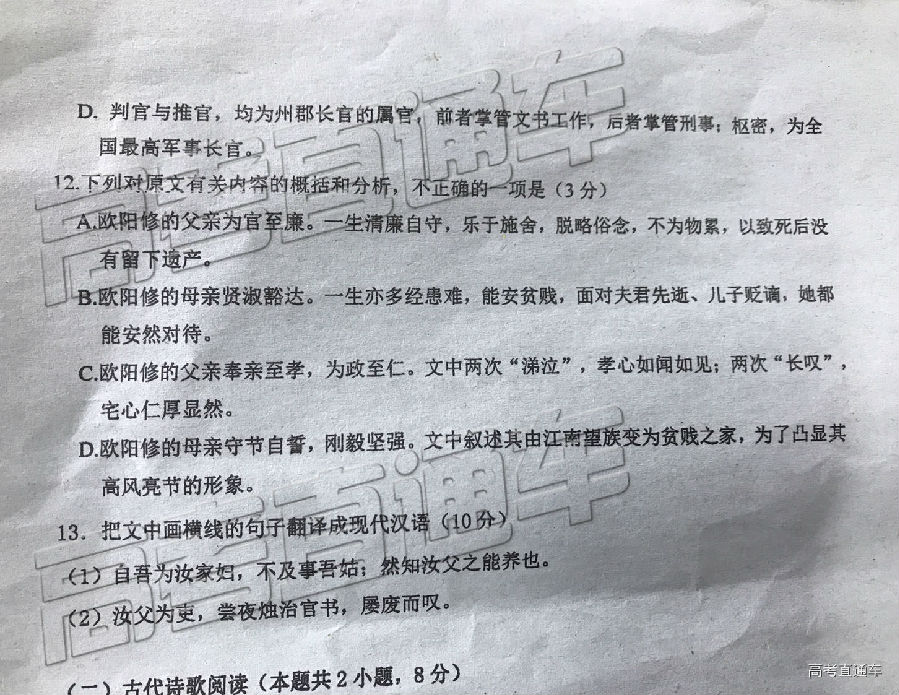 D. 判官与推官，均为州郡长官的属官，前者掌管文书工作，后者掌管刑事；枢密，为全
国最高军事长官。
12.下列对原文有关内容的概括和分析，不正确的一项是（3分）
A.欧阳修的父亲为官至廉。一生清廉自守，乐于施舍，脱略俗念，不为物累，以致死后没
有留下遗产。
B.欧阳修的母亲贤淑豁达。一生亦多经患难，能安贫贱，面对夫君先逝、儿子贬谪，她都
能安然对待。
C.欧阳修的父亲奉亲至孝，为政至仁。文中两次“涕泣”，孝心如闻如见；两次“长叹”，
宅心仁厚显然。
D.欧阳修的母亲守节自誓，刚毅坚强。文中叙述其由江南望族变为贫贱之家，为了凸显其
高风亮节的形象。
13．把文中画横线的句子翻译成现代汉语（10分）
（1）自吾为汝家妇，不及事吾姑；然知汝父之能养也。
（2）汝父为吏，尝夜烛治官书，屡废而叹。
（二）古代诗歌阅读（本题共2小题，8分）
高考直通车
高考直通车
高考直通车